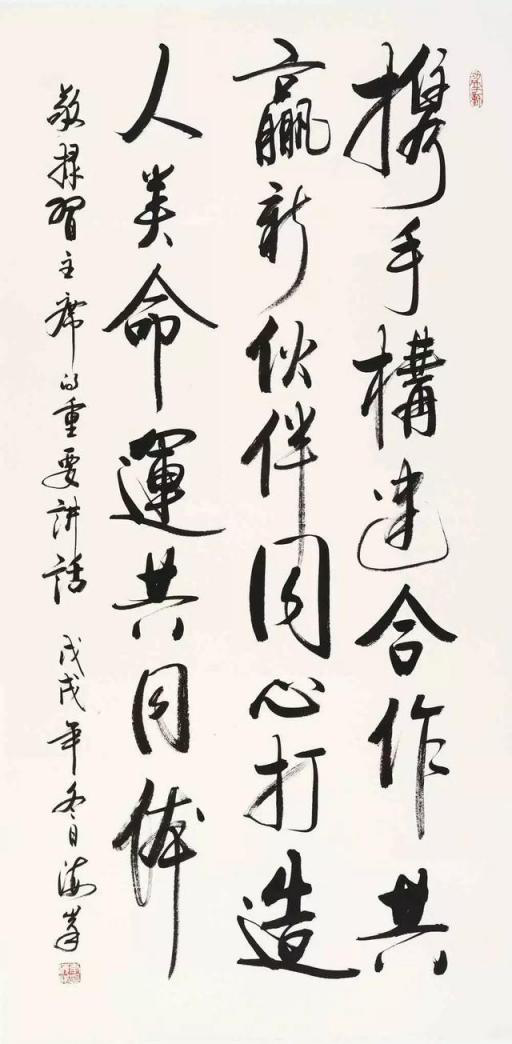 携手構建合作共
贏新伙伴同心打造
人类命運共同体
敬录習主席的重要讲話 戊戌年冬日海峰